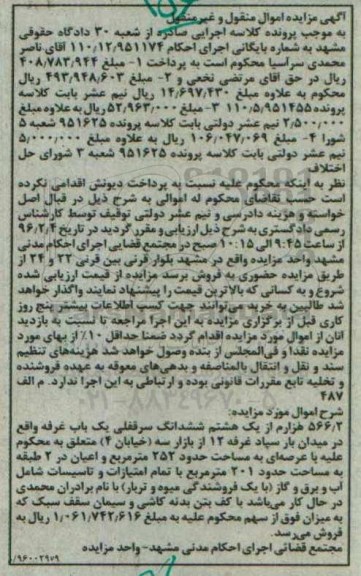 آگهی مزایده اموال منقول و غیرمنقول
به موجب پرونده کلاسه اجرایی صادره از شعبه ۳۰ دادگاه حقوقی
مشهد به شماره بایگانی اجرای احکام ۱۱۰/۱۲/۹۵۱۱۷۴ آقای ناصر
محمدی سرآسیا محکوم است به پرداخت ۱- مبلغ ۴۰۸/۷۸۳/۹۴۴
ریال در حق آقای مرتضی نخعی و ۲- مبلغ ۴۹۳/۹۴۸/۶۰۳ ریال
محکوم به علاوه مبلغ ۱۴/۶۹۷/۴۳۰ ریال نیم عشر بابت کلاسه
پرونده ۱۱۰/۵/۹۵۱۴۵۵ ۳-مبلغ ۵۲/۹۶۳/۰۰۰ ریال به علاوه مبلغ
۲/۵۰۰/۰۰۰ نیم عشر دولتی بابت کلاسه پرونده ۹۵۱۶۲۵ شعبه ۵
شورا ۴- مبلغ ۱۰۶/۰۴۷/۰۶۹ ریال به علاوه مبلغ ۵/۰۰۰/۰۰۰
نیم عشر دولتی بابت کلاسه پرونده ۹۵۱۶۲۵ شعبه ۳ شورای حل
اختلاف
نظر به اینکه محکوم علیه نسبت به پرداخت دیونش اقدامی نکرده
است حسب تقاضای محکوم له اموالی به شرح ذیل در قبال اصل
خواسته و هزینه دادرسی و نیم عشر دولتی توقیف توسط کارشناس
رسمی دادگستری به شرح ذیل ارزیابی و مقرر گردید در تاریخ ۹۶/۲/۴
از ساعت ۹:۴۵ الی ۱۰:۱۵ صبح در مجتمع قضایی اجرای احکام مدنی
مشهد واحد مزایده واقع در مشهد بلوار قرنی بین قرنی ۲۲ و ۲۴ از
طریق مزایده حضوری به فروش برسد مزایده از قیمت ارزیابی شده
شروع و به کسانی که بالاترین قیمت را پیشنهاد نمایند واگذار خواهد
شد طالبین به خرید می‌توانند جهت کسب اطلاعات بیشتر پنج روز
کاری قبل از برگزاری مزایده به این اجرا مراجعه تا نسبت به بازدید
آنان از اموال مورد مزایده اقدام گردد ضمنا حداقل ۱۰٪ از بهای مورد
مزایده نقدا و فی‌المجلس از بنده وصول خواهد شد هزینه‌های تنظیم
سند و نقل و انتقال بالمناصفه و بدهی‌های معوقه به عهده فروشنده
و تخلیه تابع مقررات قانونی بوده و ارتباطی به این اجرا ندارد. م الف
۴۸۷
شرح اموال مورد مزایده:
۵۶۶/۲ هزارم از یک هشتم ششدانگ سرقفلی یک باب غرفه واقع
در میدان بار سپاد غرفه ۱۲ از بازار سه (خیابان ۴) متعلق به محکوم
علیه با عرصه‌ای به مساحت حدود ۲۵۲ مترمربع و اعیان در ۲ طبقه
به مساحت حدود ۲۰۱ مترمربع با تمام امتیازات و تاسیسات شامل
آب و برق و گاز (با یک فروشندگی میوه و تربار) با نام برادران محمدی
در حال کار می‌باشد با کف بتن بدنه کاشی و سیمان سقف سبک که
به میزان فوق از سهم محکوم علیه به مبلغ ۱/۰۶۱/۷۴۲/۶۱۶ ریال به
فروش می‌رسد.
مجتمع قضائی اجرای احکام مدنی مشهد- واحد مزایده
/۹۶۰۰۲۹۷۹
۰۲۱-۸۸۳۴۹۶۷۰-۵